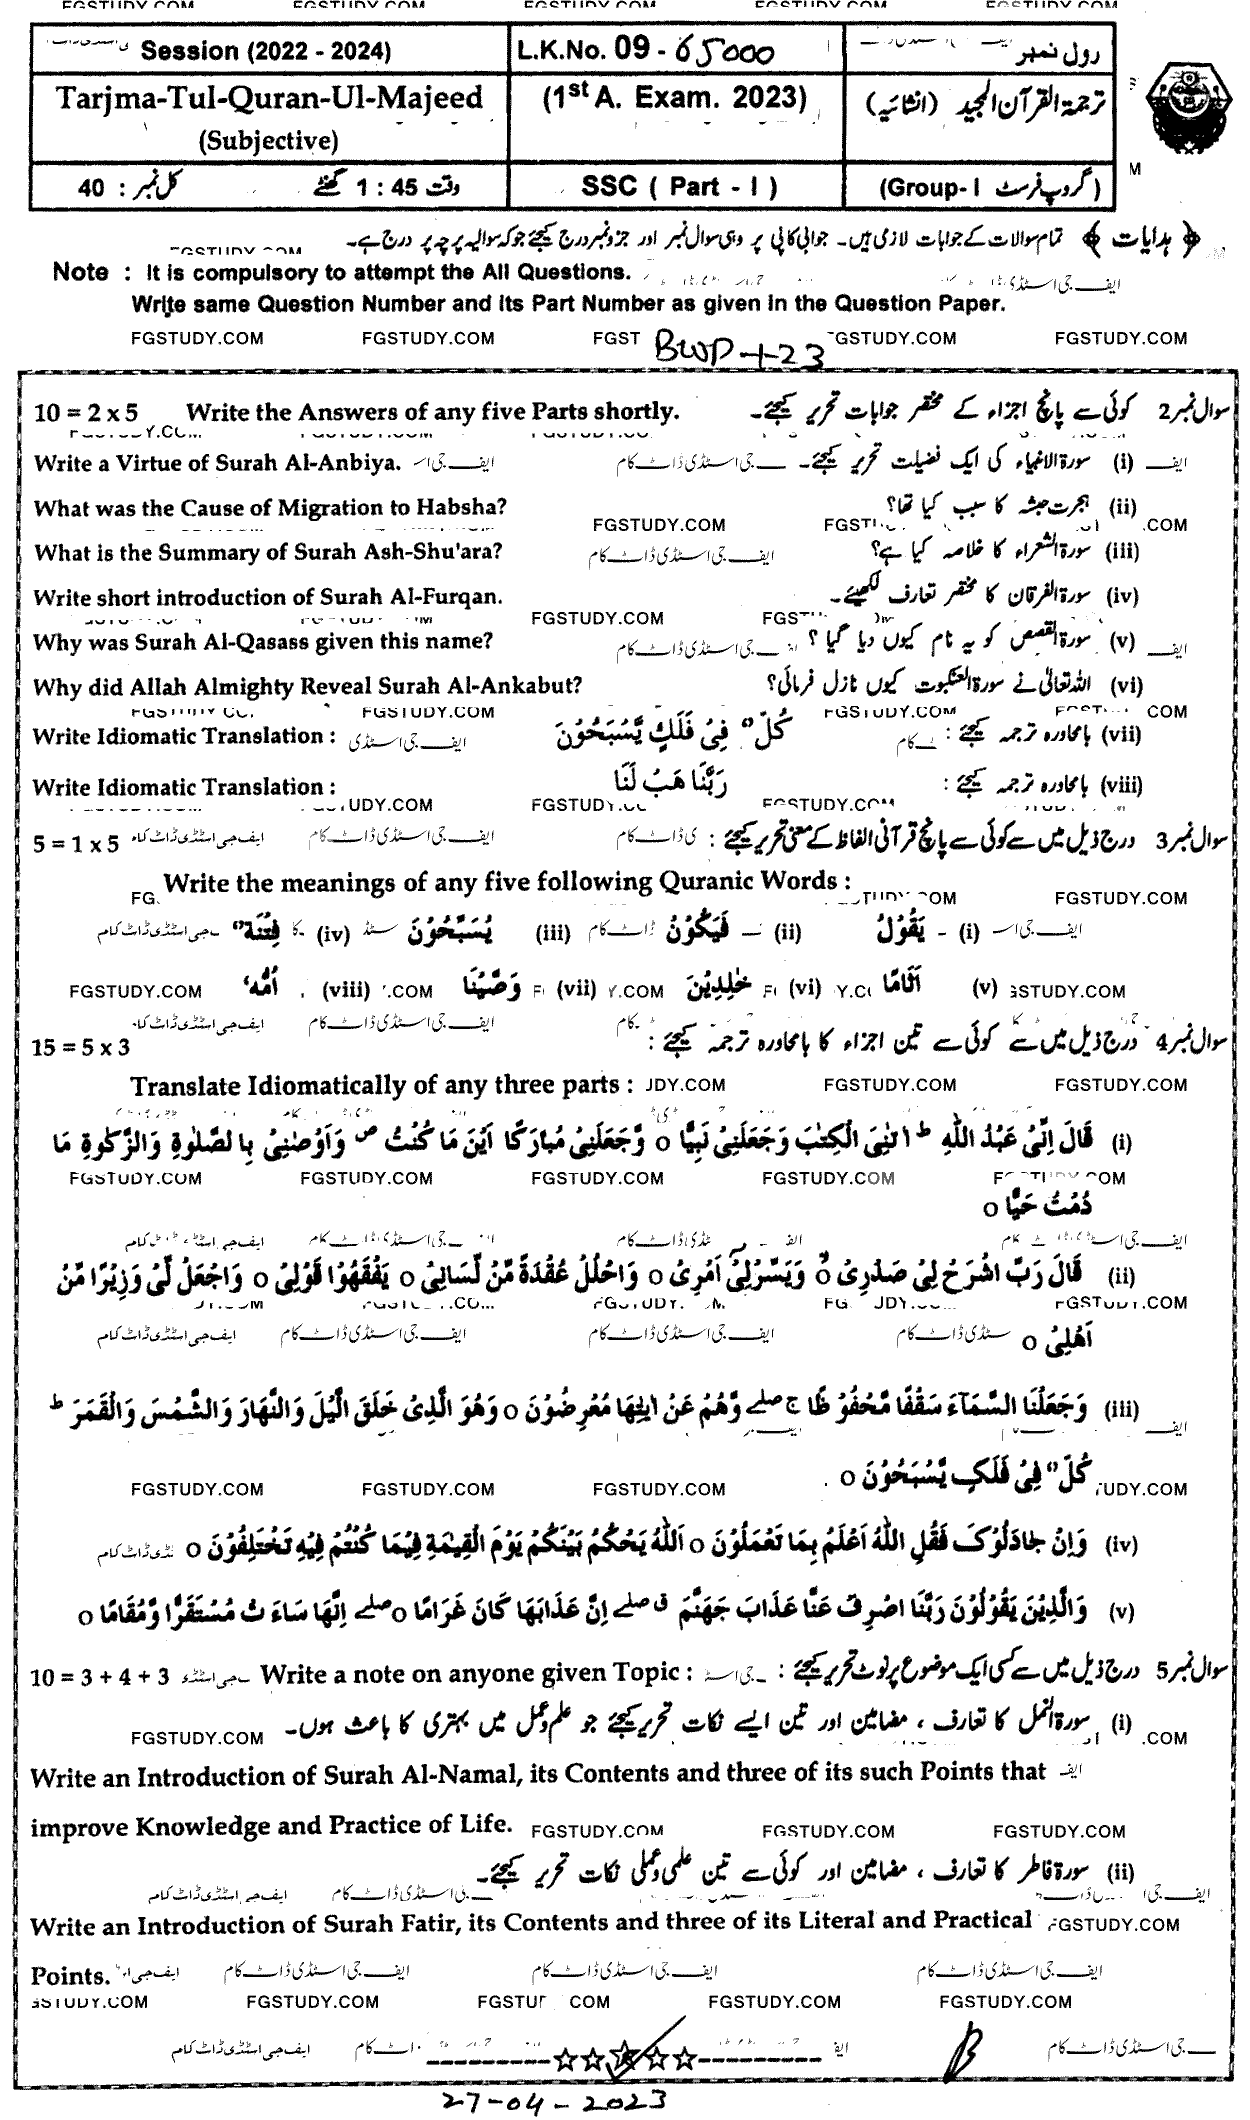 Session (2022 - 2024) L.K.No. 09 - 65000 رول نمبر
Tarjma-Tul-Quran-Ul-Majeed (1st A. Exam. 2023) ترجمۃ القرآن المجید (انشائیہ)
(Subjective)
کل نمبر : 40 وقت 1 : 45 گھنٹے SSC ( Part - I ) (گروپ فرسٹ Group- I)
﴿ ہدایات ﴾ تمام سوالات کے جوابات لازمی ہیں۔ جوابی کاپی پر وہی سوال نمبر اور جزو نمبر درج کیجئے جو کہ سوالیہ پرچہ پر درج ہے۔
Note : It is compulsory to attempt the All Questions.
Write same Question Number and its Part Number as given in the Question Paper.
FGSTUDY.COM FGSTUDY.COM FGST BWP-1-23 FGSTUDY.COM FGSTUDY.COM
10 = 2 x 5 Write the Answers of any five Parts shortly. سوال نمبر 2 کوئی سے پانچ اجزاء کے مختصر جوابات تحریر کیجئے۔
Write a Virtue of Surah Al-Anbiya. (i) سورۃ الانبیاء کی ایک فضیلت تحریر کیجئے۔
What was the Cause of Migration to Habsha? (ii) ہجرت حبشہ کا سبب کیا تھا؟
What is the Summary of Surah Ash-Shu'ara? (iii) سورۃ الشعراء کا خلاصہ کیا ہے؟
Write short introduction of Surah Al-Furqan. (iv) سورۃ الفرقان کا مختصر تعارف لکھیئے۔
Why was Surah Al-Qasass given this name? (v) سورۃ القصص کو یہ نام کیوں دیا گیا ؟
Why did Allah Almighty Reveal Surah Al-Ankabut? (vi) اللہ تعالیٰ نے سورۃ العنکبوت کیوں نازل فرمائی؟
Write Idiomatic Translation : كُلٌّ فِیْ فَلَكٍ یَّسْبَحُوْنَ (vii) بامحاورہ ترجمہ کیجئے :
Write Idiomatic Translation : رَبَّنَا هَبْ لَنَا (viii) بامحاورہ ترجمہ کیجئے :
5 = 1 x 5 سوال نمبر 3 درج ذیل میں سے کوئی سے پانچ قرآنی الفاظ کے معنی تحریر کیجئے :
Write the meanings of any five following Quranic Words :
(i) یَقُوْلُ (ii) فَیَكُوْنُ (iii) یُسَبِّحُوْنَ (iv) فِتْنَةٌ
(v) اَثَامًا (vi) خٰلِدِیْنَ (vii) وَصَّیْنَا (viii) اُمُّهٗ
15 = 5 x 3 سوال نمبر 4 درج ذیل میں سے کوئی سے تین اجزاء کا بامحاورہ ترجمہ کیجئے :
Translate Idiomatically of any three parts :
(i) قَالَ اِنِّیْ عَبْدُ اللّٰهِ ط اٰتٰنِیَ الْكِتٰبَ وَجَعَلَنِیْ نَبِیًّا o وَّجَعَلَنِیْ مُبَارَكًا اَیْنَ مَا كُنْتُ ص وَاَوْصٰنِیْ بِالصَّلٰوةِ وَالزَّكٰوةِ مَا
دُمْتُ حَیًّا o
(ii) قَالَ رَبِّ اشْرَحْ لِیْ صَدْرِیْ o وَیَسِّرْلِیْ اَمْرِیْ o وَاحْلُلْ عُقْدَةً مِّنْ لِّسَانِیْ o یَفْقَهُوْا قَوْلِیْ o وَاجْعَلْ لِّیْ وَزِیْرًا مِّنْ
اَهْلِیْ o
(iii) وَجَعَلْنَا السَّمَآءَ سَقْفًا مَّحْفُوْظًا ج صلے وَّهُمْ عَنْ اٰیٰتِهَا مُعْرِضُوْنَ o وَهُوَ الَّذِیْ خَلَقَ الَّیْلَ وَالنَّهَارَ وَالشَّمْسَ وَالْقَمَرَ ط
كُلٌّ فِیْ فَلَكٍ یَّسْبَحُوْنَ o
(iv) وَاِنْ جَادَلُوْكَ فَقُلِ اللّٰهُ اَعْلَمُ بِمَا تَعْمَلُوْنَ o اَللّٰهُ یَحْكُمُ بَیْنَكُمْ یَوْمَ الْقِیٰمَةِ فِیْمَا كُنْتُمْ فِیْهِ تَخْتَلِفُوْنَ o
(v) وَالَّذِیْنَ یَقُوْلُوْنَ رَبَّنَا اصْرِفْ عَنَّا عَذَابَ جَهَنَّمَ ق صلے اِنَّ عَذَابَهَا كَانَ غَرَامًا o صلے اِنَّهَا سَاءَتْ مُسْتَقَرًّا وَّمُقَامًا o
10 = 3 + 4 + 3 Write a note on anyone given Topic : سوال نمبر 5 درج ذیل میں سے کسی ایک موضوع پر نوٹ تحریر کیجئے :
(i) سورۃ النمل کا تعارف ، مضامین اور تین ایسے نکات تحریر کیجئے جو علم و عمل میں بہتری کا باعث ہوں۔
Write an Introduction of Surah Al-Namal, its Contents and three of its such Points that
improve Knowledge and Practice of Life. FGSTUDY.COM FGSTUDY.COM FGSTUDY.COM
(ii) سورۃ فاطر کا تعارف ، مضامین اور کوئی سے تین علمی و عملی نکات تحریر کیجئے۔
Write an Introduction of Surah Fatir, its Contents and three of its Literal and Practical FGSTUDY.COM
Points.
27-04-2023